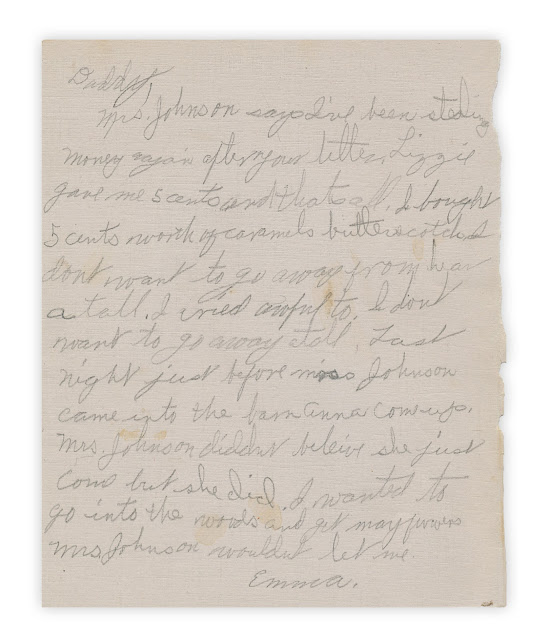 Daddy,
Mrs. Johnson says I've been stealing
money again after your letter. Lizzie
gave me 5 cents and thats all. I bought
5 cents worth of caramels butterscotch. I
dont want to go away from hear
a tall. I cried awful to. I dont
want to go away atall. Last
night just before miss Johnson
came into the barn anna come up.
Mrs. Johnson diddnt beleive she just
come but she did. I wanted to
go into the woods and get mayflowers
Mrs Johnson wouldnt let me.
Emma.